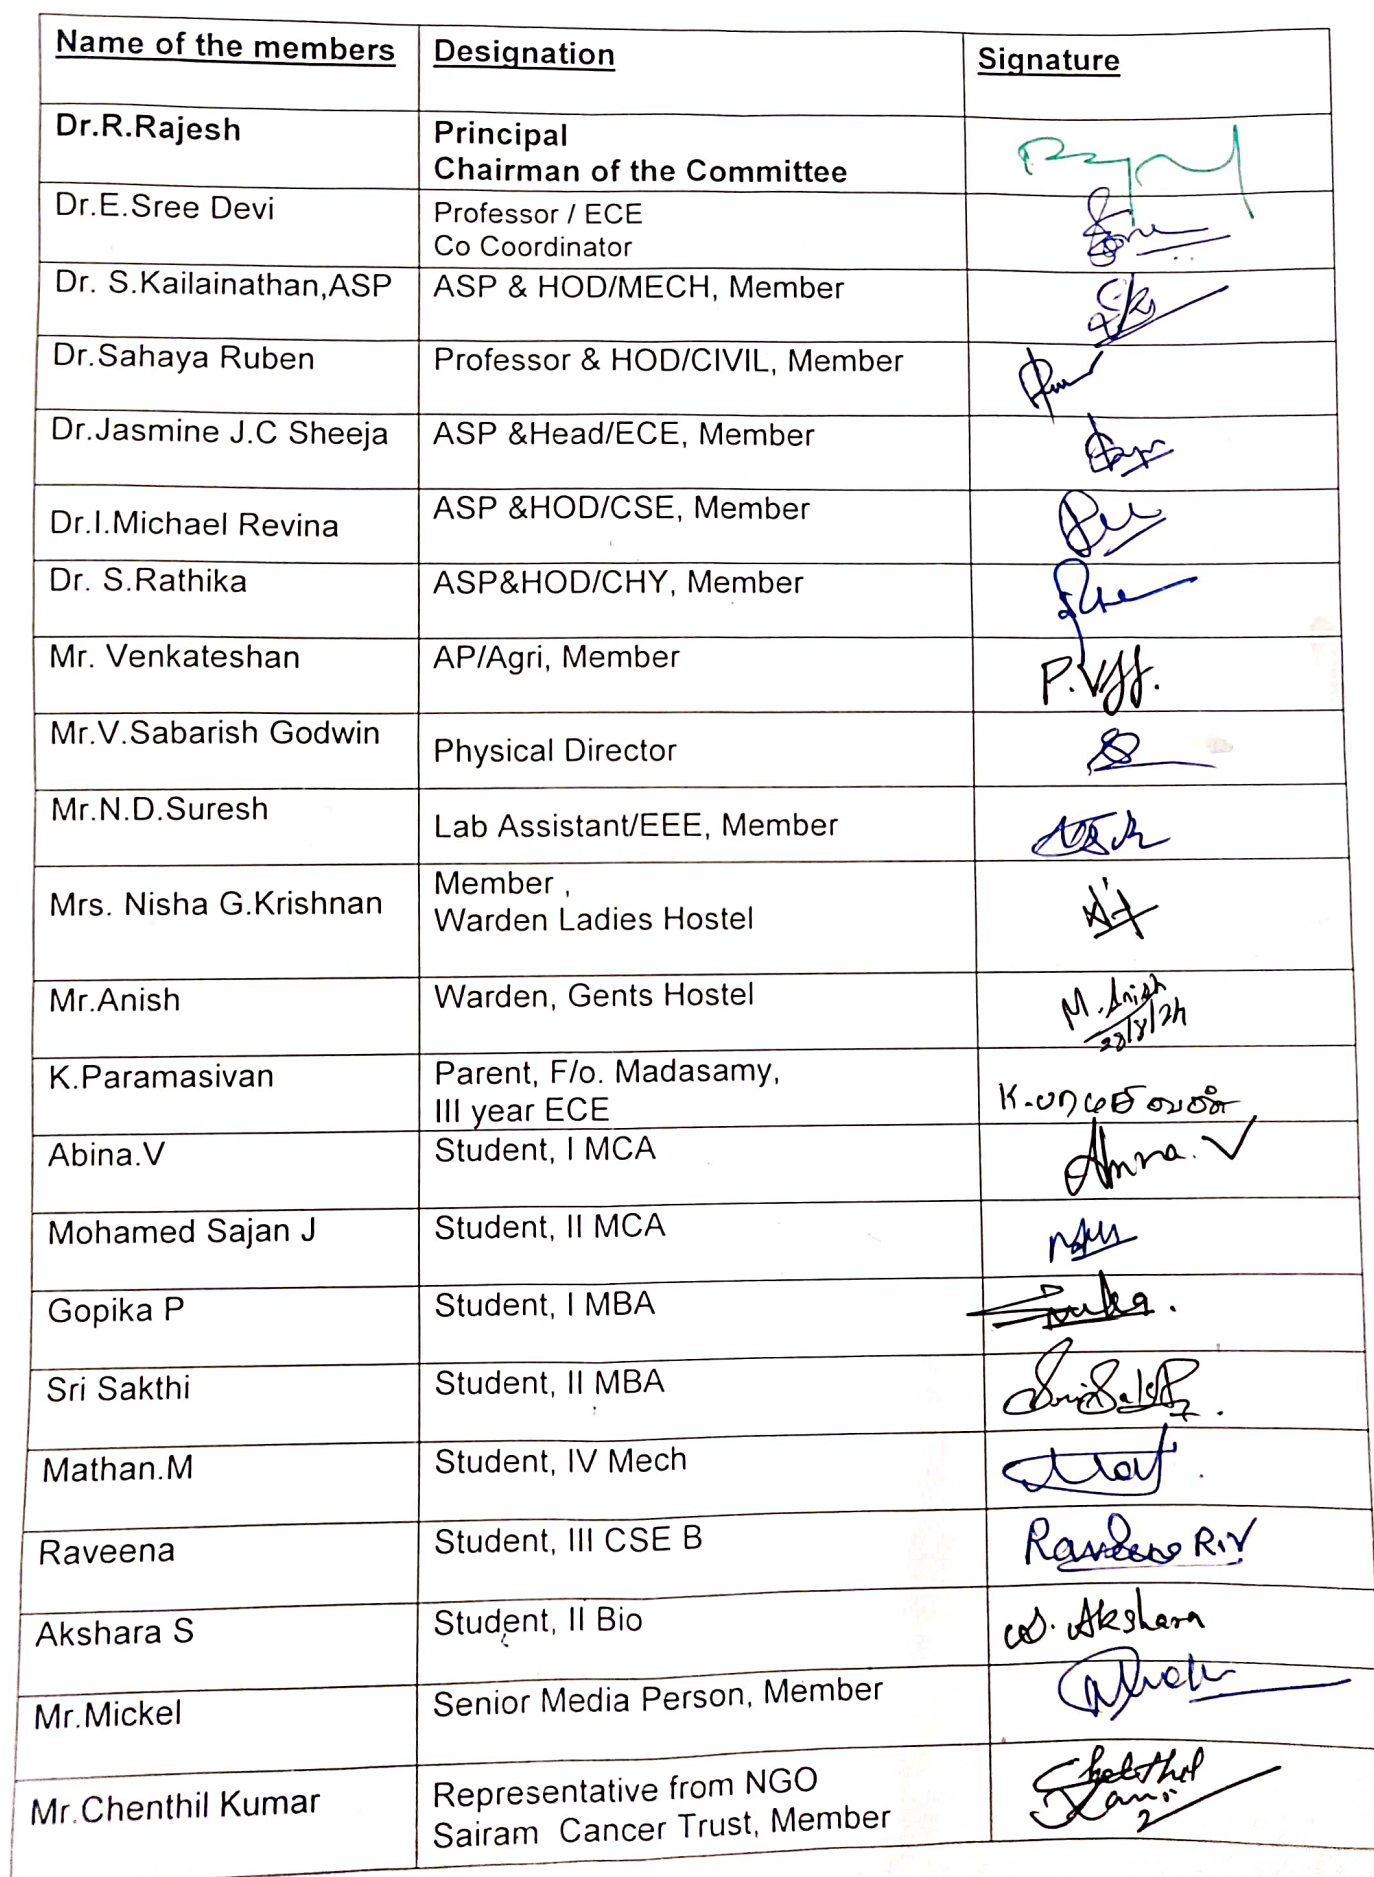 Name of the members Designation Signature
Dr.R.Rajesh Principal
Chairman of the Committee
Dr.E.Sree Devi Professor / ECE
Co Coordinator
Dr. S.Kailainathan,ASP ASP & HOD/MECH, Member
Dr.Sahaya Ruben Professor & HOD/CIVIL, Member
Dr.Jasmine J.C Sheeja ASP &Head/ECE, Member
Dr.I.Michael Revina ASP &HOD/CSE, Member
Dr. S.Rathika ASP&HOD/CHY, Member
Mr. Venkateshan AP/Agri, Member
Mr.V.Sabarish Godwin Physical Director
Mr.N.D.Suresh Lab Assistant/EEE, Member
Mrs. Nisha G.Krishnan Member ,
Warden Ladies Hostel
Mr.Anish Warden, Gents Hostel M. Anish
28/8/24
K.Paramasivan Parent, F/o. Madasamy,
III year ECE K.பரமசிவன்
Abina.V Student, I MCA
Mohamed Sajan J Student, II MCA
Gopika P Student, I MBA
Sri Sakthi Student, II MBA
Mathan.M Student, IV Mech
Raveena Student, III CSE B R.V
Akshara S Student, II Bio S. Akshara
Mr.Mickel Senior Media Person, Member
Mr.Chenthil Kumar Representative from NGO
Sairam Cancer Trust, Member